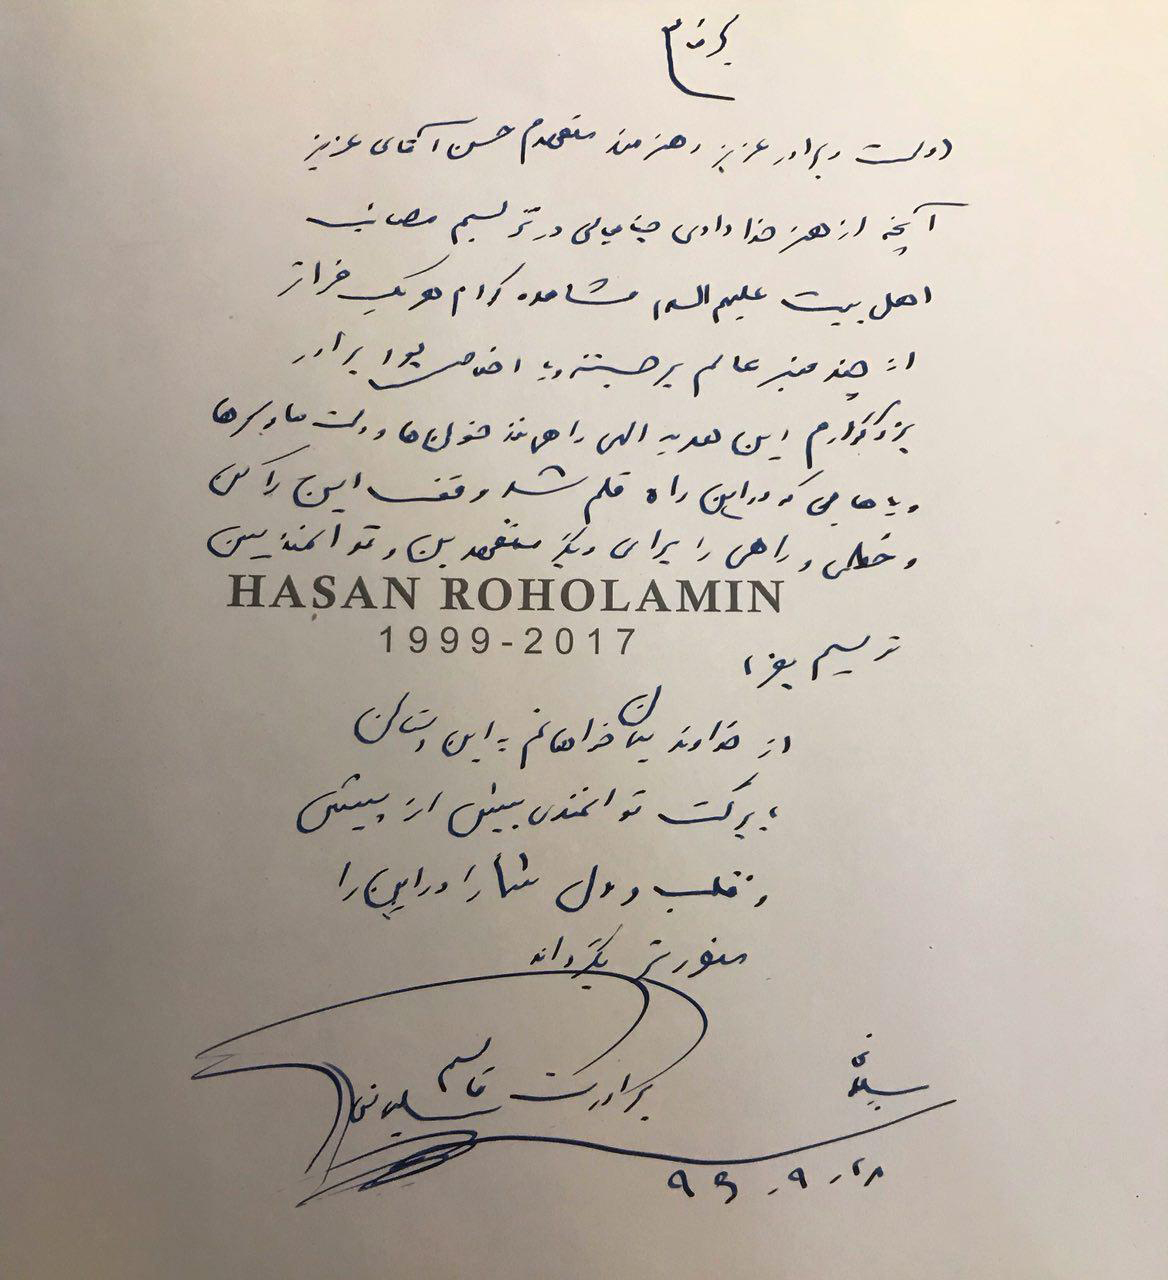 دوست و برادر عزیز و هنرمند متعهدم حسن آقای عزیز
آنچه از هنر خدادادی جنابعالی در ترسیم مصائب
اهل بیت علیهم السلام مشاهده کردم هر یک فراتر
از چند منبر عالم برجسته و با اخلاص بود برادر
بزرگوارم این هدیه الهی را همانند خون‌ها و دست‌ها و سرها
و پاهایی که در این راه قلم شد وقف این راه کن
و خطی و راهی را برای دیگر متعهدین و توانمندیین
HASAN ROHOLAMIN
1999-2017
ترسیم بفرما
از خداوند خواهانم به این دستان
برکت توانمندی بیش از پیش
و قلب و دل شما را در این راه
منورتر بگرداند
برادرت قاسم
سلیمانی